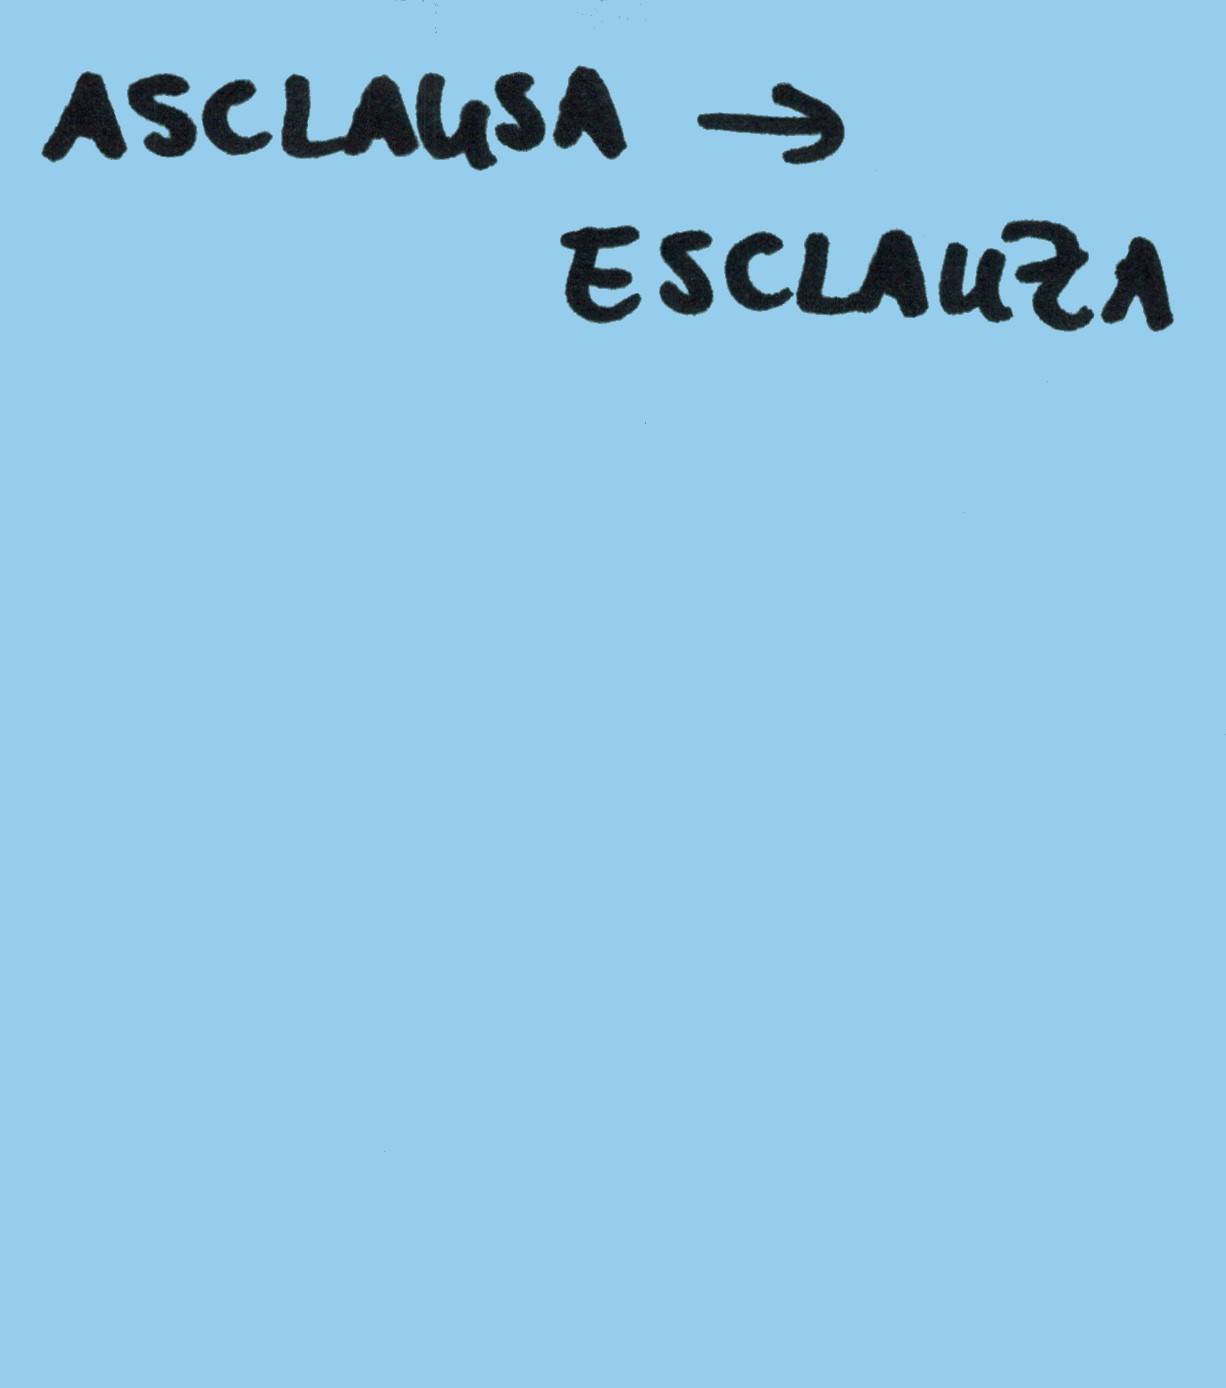 ASCLAUSA →
ESCLAUZA